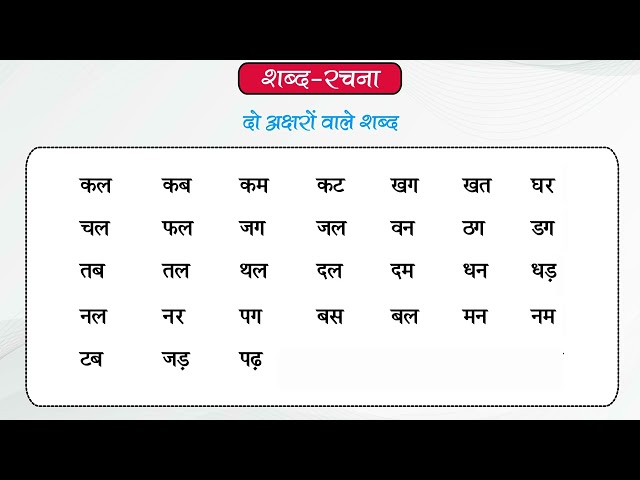 शब्द-रचना
दो अक्षरों वाले शब्द
कल कब कम कट खग खत घर
चल फल जग जल वन ठग डग
तब तल थल दल दम धन धड़
नल नर पग बस बल मन नम
टब जड़ पढ़